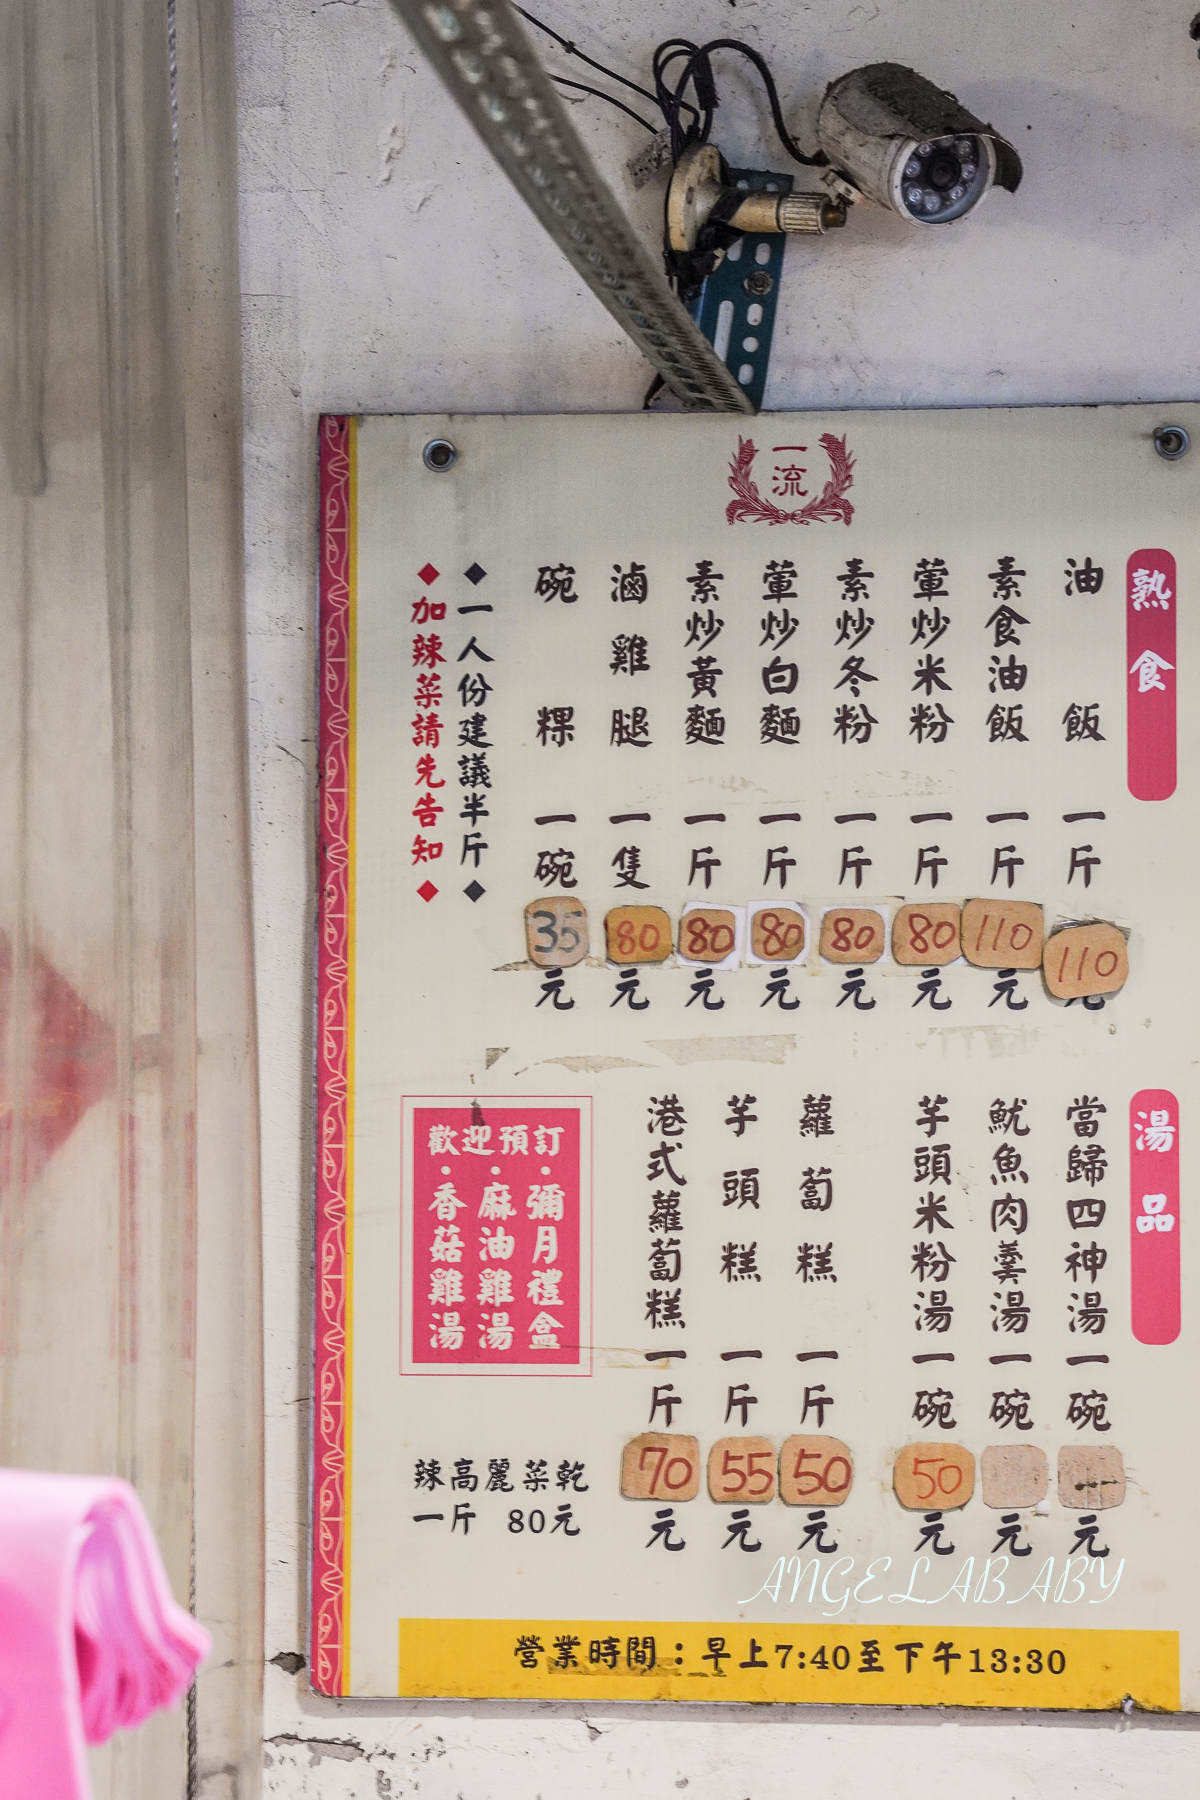 一流
熟食
油飯一斤110元
素食油飯一斤110元
葷炒米粉一斤80元
素炒冬粉一斤80元
葷炒白麵一斤80元
素炒黃麵一斤80元
滷雞腿一隻80元
碗粿一碗35元
◆一人份建議半斤◆
◆加辣菜請先告知◆
湯品
當歸四神湯一碗 元
魷魚肉羹湯一碗 元
芋頭米粉湯一碗50元
蘿蔔糕一斤50元
芋頭糕一斤55元
港式蘿蔔糕一斤70元
歡迎預訂
·彌月禮盒
·麻油雞湯
·香菇雞湯
辣高麗菜乾
一斤 80元
ANGELABABY
營業時間：早上7:40至下午13:30